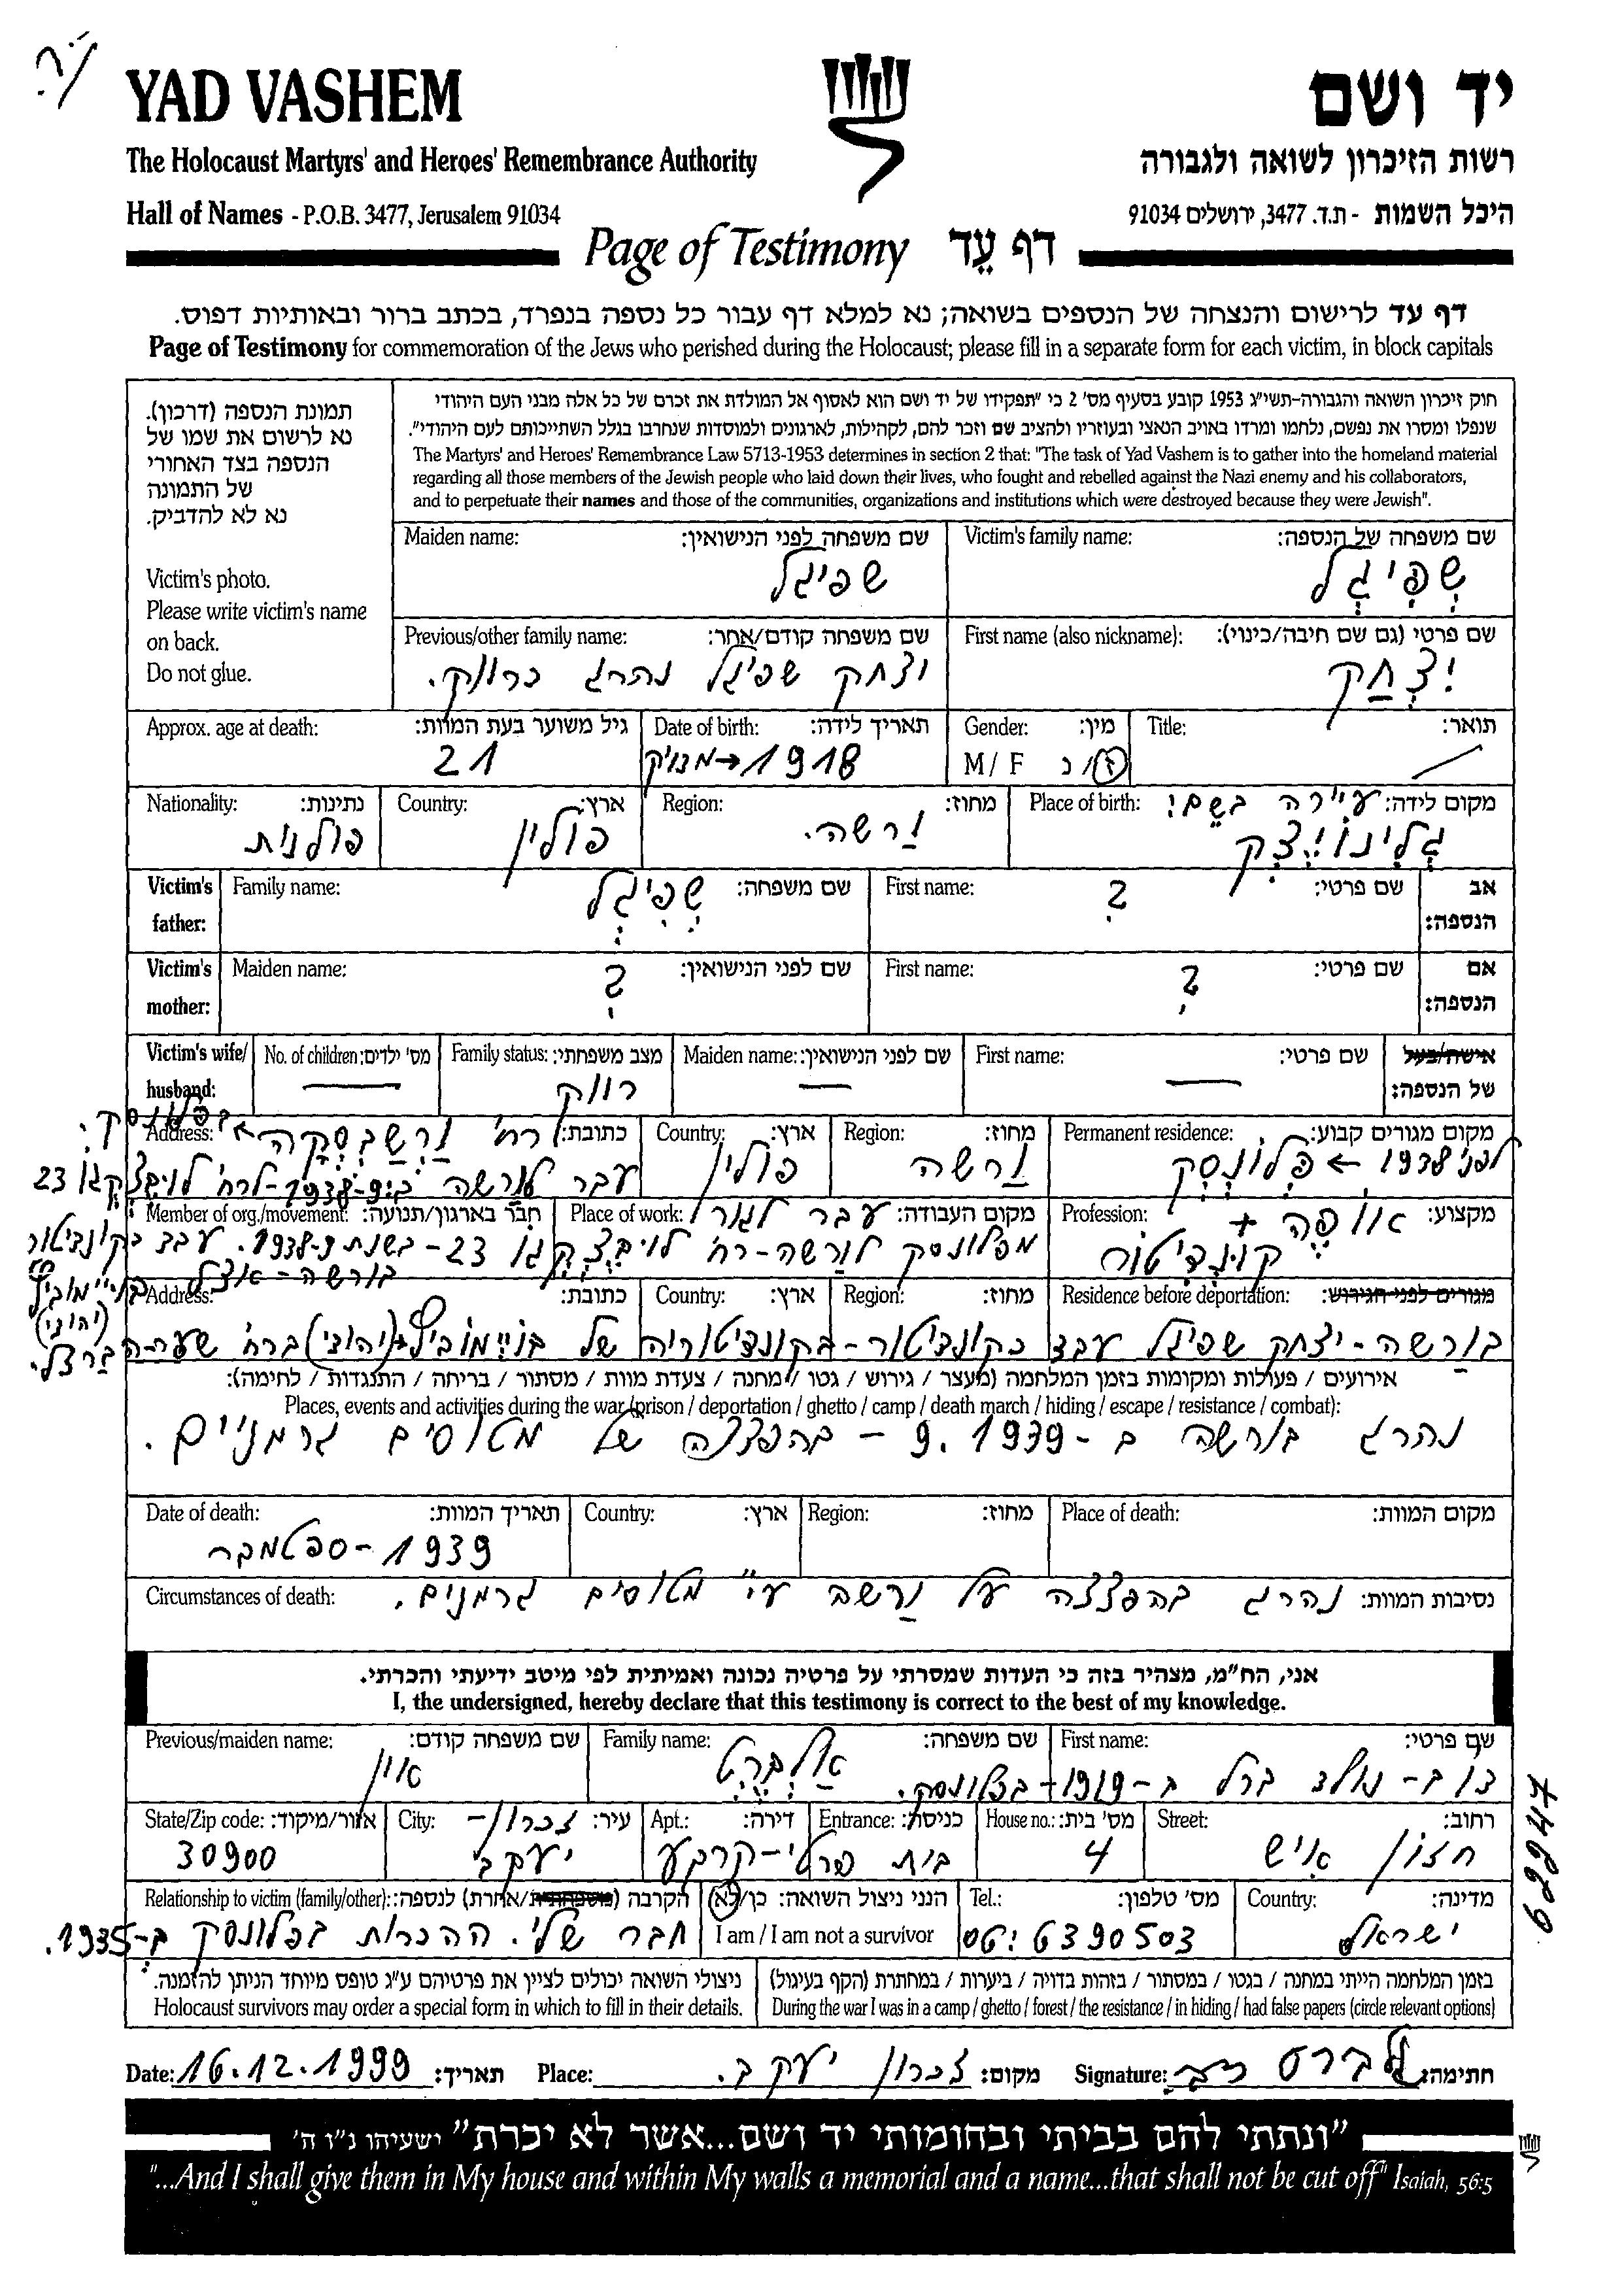 YAD VASHEM
יד ושם
The Holocaust Martyrs' and Heroes' Remembrance Authority
רשות הזיכרון לשואה ולגבורה
Hall of Names - P.O.B. 3477, Jerusalem 91034
היכל השמות - ת.ד. 3477, ירושלים 91034
Page of Testimony דף עֵד
דף עד לרישום והנצחה של הנספים בשואה; נא למלא דף עבור כל נספה בנפרד, בכתב ברור ובאותיות דפוס.
Page of Testimony for commemoration of the Jews who perished during the Holocaust; please fill in a separate form for each victim, in block capitals
תמונת הנספה (דרכון).
נא לרשום את שמו של
הנספה בצד האחורי
של התמונה
נא לא להדביק.
Victim's photo.
Please write victim's name
on back.
Do not glue.
חוק זיכרון השואה והגבורה-תשי"ג 1953 קובע בסעיף מס' 2 כי "תפקידו של יד ושם הוא לאסוף אל המולדת את זכרם של כל אלה מבני העם היהודי
שנפלו ומסרו את נפשם, נלחמו ומרדו באויב הנאצי ובעוזריו ולהציב שם וזכר להם, לקהילות, לארגונים ולמוסדות שנחרבו בגלל השתייכותם לעם היהודי".
The Martyrs' and Heroes' Remembrance Law 5713-1953 determines in section 2 that: "The task of Yad Vashem is to gather into the homeland material
regarding all those members of the Jewish people who laid down their lives, who fought and rebelled against the Nazi enemy and his collaborators,
and to perpetuate their names and those of the communities, organizations and institutions which were destroyed because they were Jewish".
Victim's family name: שם משפחה של הנספה:
שְׁפִּיגְל
Maiden name: שם משפחה לפני הנישואין:
שפיגל
First name (also nickname): שם פרטי (גם שם חיבה/כינוי):
יִצְחַק
Previous/other family name: שם משפחה קודם/אחר:
יצחק שפיגל נהרג כרווק.
Title: תואר:
Gender: מין:
M / F ז/נ
Date of birth: תאריך לידה:
1918
Approx. age at death: גיל משוער בעת המוות:
21
Place of birth: מקום לידה: עיירה בשם:
Region: מחוז:
וַרשה.
Country: ארץ:
פולין
Nationality: נתינות:
פולנית
Victim's father: אב הנספה:
First name: שם פרטי:
?
Family name: שם משפחה:
שְׁפִּיגְל
Victim's mother: אם הנספה:
First name: שם פרטי:
?
Maiden name: שם לפני הנישואין:
?
Victim's wife/ husband: אישה/בעל של הנספה:
First name: שם פרטי:
—
Maiden name: שם לפני הנישואין:
—
Family status: מצב משפחתי:
רווק
No. of children: מס' ילדים:
—
Permanent residence: מקום מגורים קבוע:
לפני 1938 ← פְּלוֹנְסְק
Region: מחוז:
וַרשה
Country: ארץ:
פולין
Address: כתובת: רח' וַרְשַׁבְסְקָה ← בפלונסק.
עבר לוַרשה ב-1938-9 לרח' 23
Profession: מקצוע: אוֹפֶה +
קוֹנְדִיטוֹר
Place of work: מקום העבודה: עבר לגור
Member of org./movement: חבר בארגון/תנועה:
מפלונסק לוַרשה - רח' 23 - בשנת 1938-9. עבד כקונדיטור
בורשה - אצל
Residence before deportation: מגורים לפני הגירוש:
Region: מחוז:
Country: ארץ:
Address: כתובת:
(יהודי)
בוַרשה - יצחק שפיגל עבד כקונדיטור - בקונדיטוריה של (יהודי) ברח' שער-הברזל.
אירועים / פעילות ומקומות בזמן המלחמה (מעצר / גירוש / גטו / מחנה / צעדת מוות / מסתור / בריחה / התנגדות / לחימה):
Places, events and activities during the war (prison / deportation / ghetto / camp / death march / hiding / escape / resistance / combat):
נהרג בורשה ב - 9.1939 - בהפצצה של מטוסים גרמניים.
Place of death: מקום המוות:
Region: מחוז:
Country: ארץ:
Date of death: תאריך המוות:
1939 - ספטמבר
Circumstances of death: נסיבות המוות: נהרג בהפצצה על וַרשה ע"י מטוסים גרמנים.
אני, הח"מ, מצהיר בזה כי העדות שמסרתי על פרטיה נכונה ואמיתית לפי מיטב ידיעתי והכרתי.
I, the undersigned, hereby declare that this testimony is correct to the best of my knowledge.
First name: שם פרטי:
נולד ב - 1919 - בפלונסק.
Family name: שם משפחה:
אַלְבֶּרְט
Previous/maiden name: שם משפחה קודם:
אין
Street: רחוב:
חזון איש
House no.: מס' בית:
4
Entrance: כניסה:
Apt.: דירה:
בית פרטי - קרקע
City: עיר: זכרון -
יעקב
State/Zip code: אזור/מיקוד:
30900
Country: מדינה:
ישראל
Tel.: מס' טלפון:
06: 6390503
הנני ניצול השואה: כן/לא
I am / I am not a survivor
Relationship to victim (family/other): הקרבה (משפחתית/אחרת) לנספה:
חבר שלי. ההכרות בפלונסק ב-1935.
בזמן המלחמה הייתי במחנה / בגטו / במסתור / בזהות בדויה / ביערות / במחתרת (הקף בעיגול)
During the war I was in a camp / ghetto / forest / the resistance / in hiding / had false papers (circle relevant options)
ניצולי השואה יכולים לציין את פרטיהם ע"ג טופס מיוחד הניתן להזמנה.
Holocaust survivors may order a special form in which to fill in their details.
62247
Date: 16.12.1999 תאריך: Place: זכרון יעקב. מקום: Signature: חתימה:
"ונתתי להם בביתי ובחומותי יד ושם...אשר לא יכרת" ישעיהו נ"ו ה'
"...And I shall give them in My house and within My walls a memorial and a name...that shall not be cut off" Isaiah, 56:5